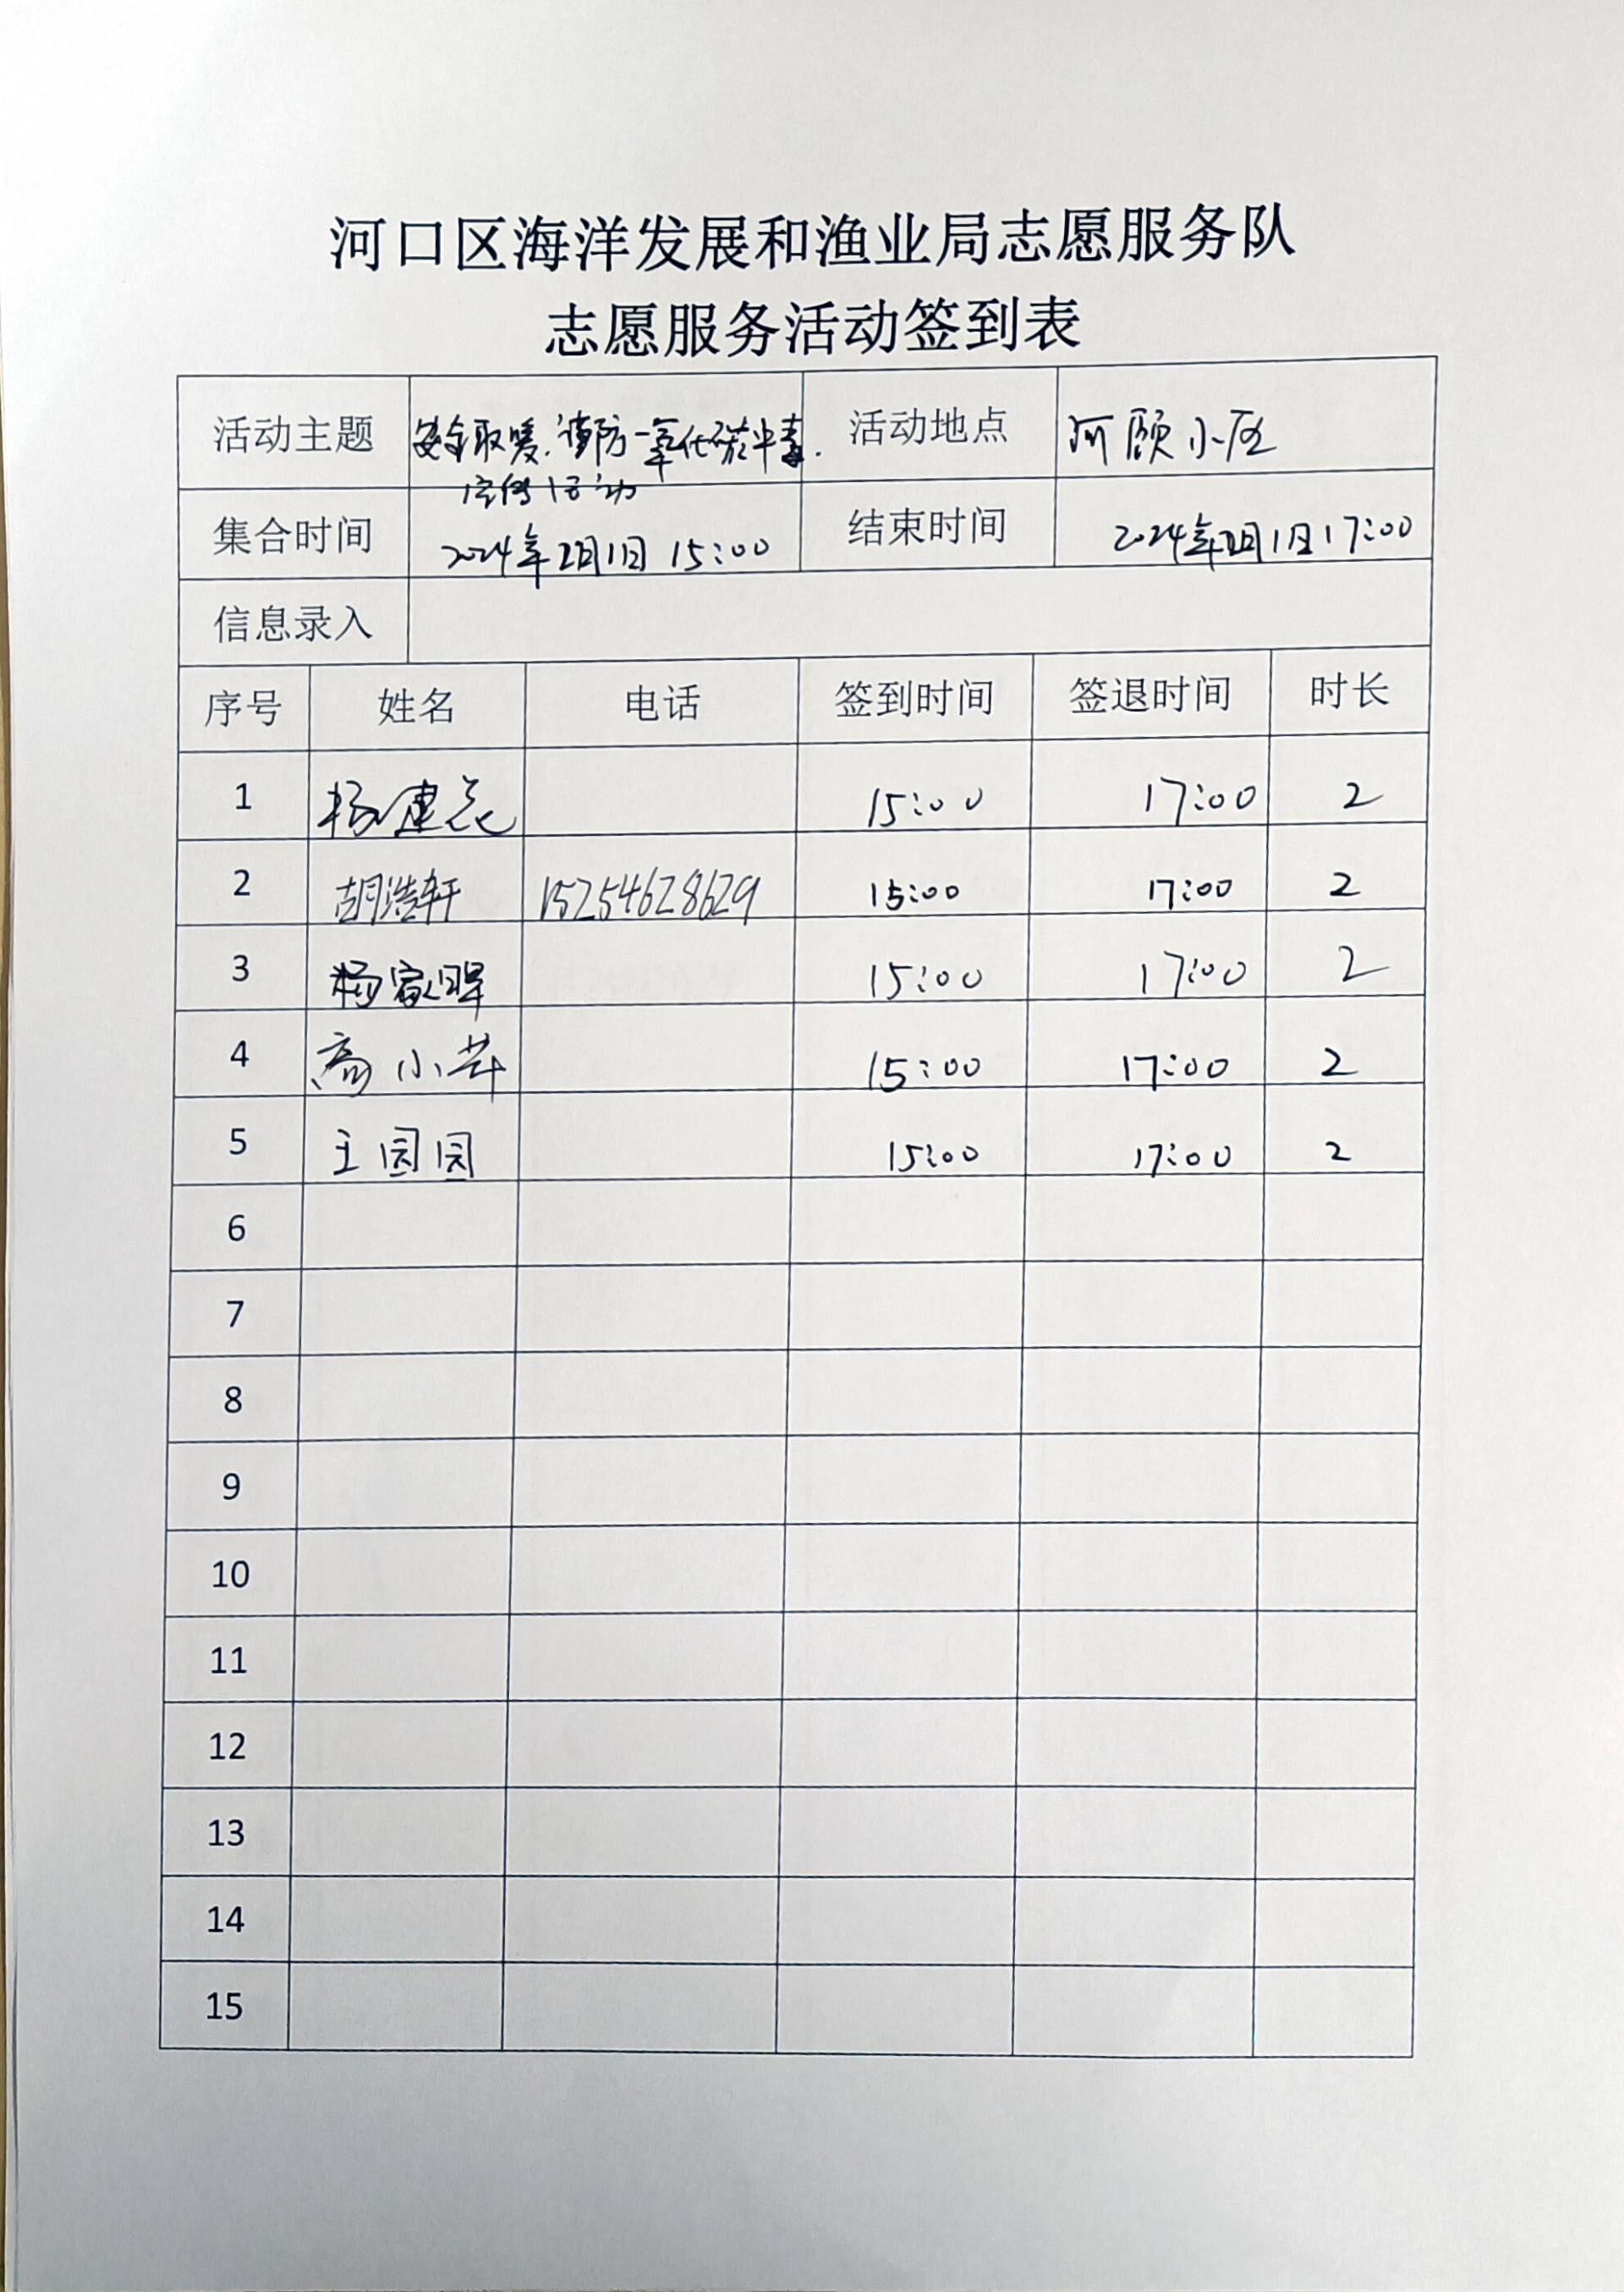 河口区海洋发展和渔业局志愿服务队
志愿服务活动签到表
活动主题 安全取暖、谨防一氧化碳中毒. 活动地点 河颐小区
宣传活动
集合时间 2024年2月1日 15:00 结束时间 2024年2月1日17:00
信息录入
序号 姓名 电话 签到时间 签退时间 时长
1 杨建 15:00 17:00 2
2 胡浩轩 15254628629 15:00 17:00 2
3 杨家晖 15:00 17:00 2
4 高小 15:00 17:00 2
5 王圆圆 15:00 17:00 2
6
7
8
9
10
11
12
13
14
15